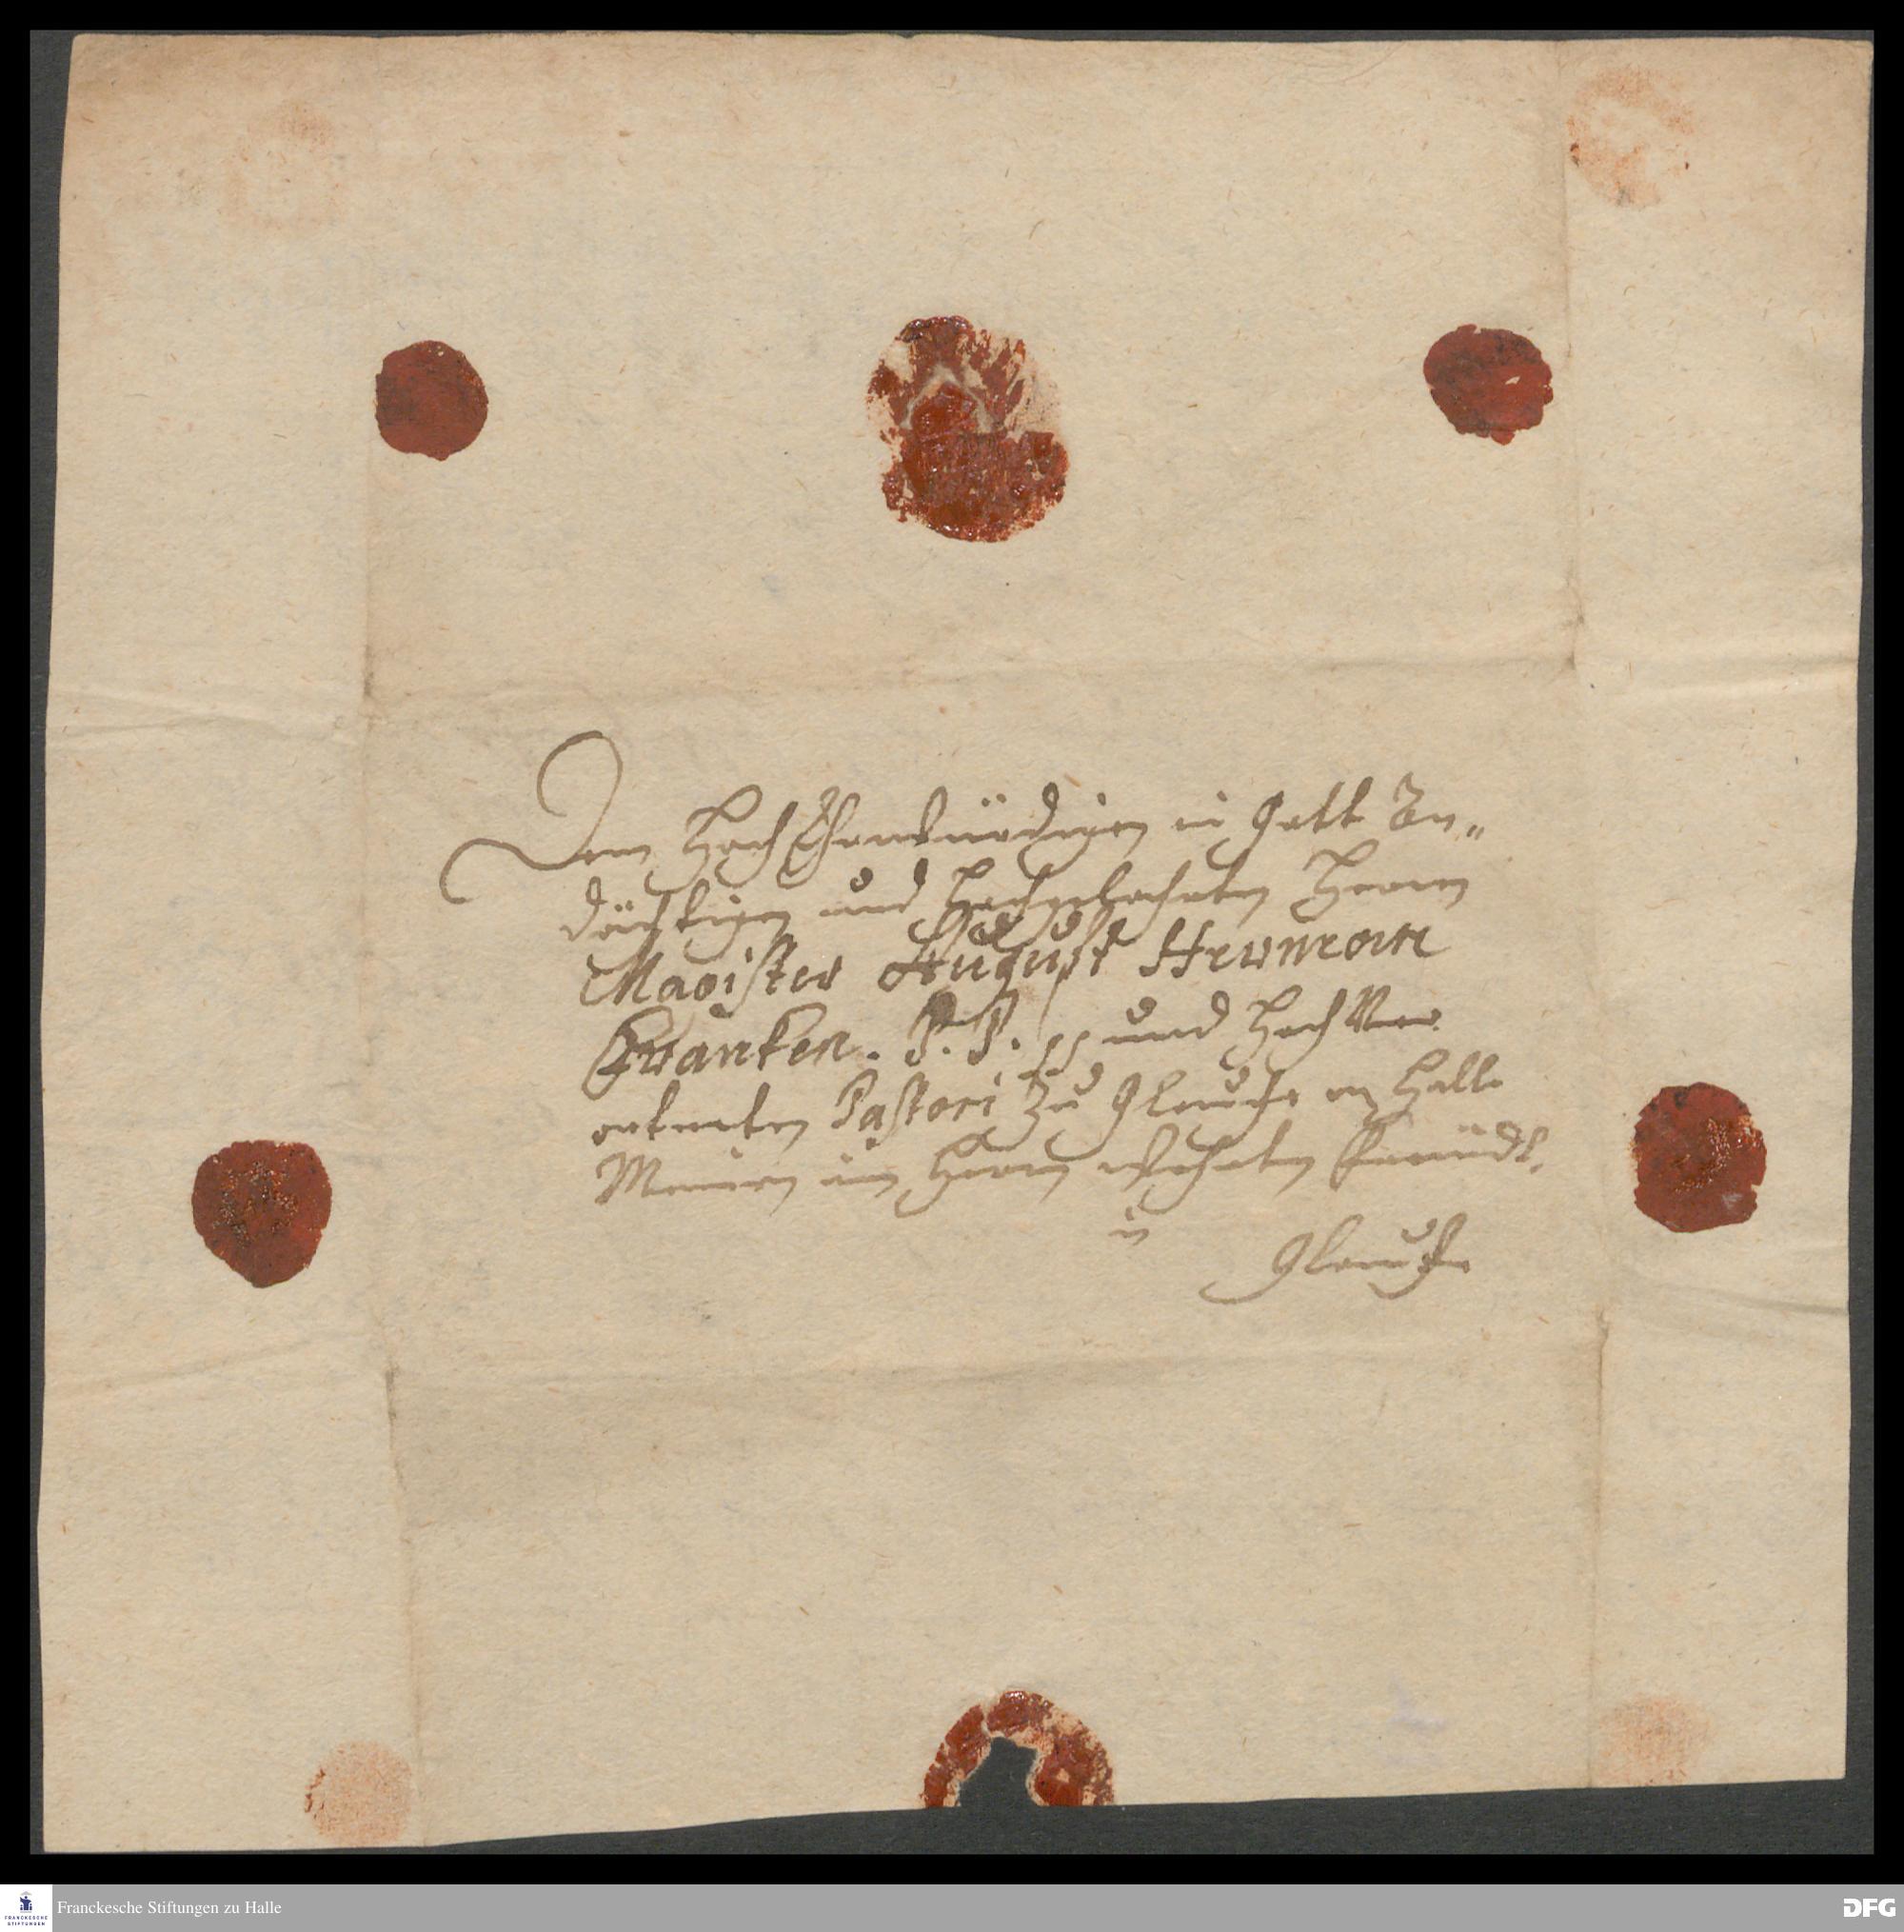 Dem HochEhrwürdigen in Gott An„
dächtigen und hochgelahrten Herren
Magister August Herman
Franken. P. P. und Hoch Ver
ordneten Pastori zu Glauche an Halle
Meinen im Herrn wehrten Freündt.
in
Glauche
Franckesche Stiftungen zu Halle
FRANCKESCHE
STIFTUNGEN
DFG